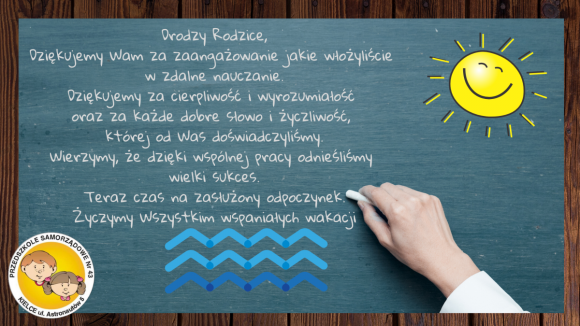 Drodzy Rodzice,
Dziękujemy Wam za zaangażowanie jakie włożyliście
w zdalne nauczanie.
Dziękujemy za cierpliwość i wyrozumiałość
oraz za każde dobre słowo i życzliwość,
której od Was doświadczyliśmy.
Wierzymy, że dzięki wspólnej pracy odnieśliśmy
wielki sukces.
Teraz czas na zasłużony odpoczynek
Życzymy Wszystkim wspaniałych wakacji
PRZEDSZKOLE SAMORZĄDOWE Nr 43
KIELCE ul. Astronautów 5